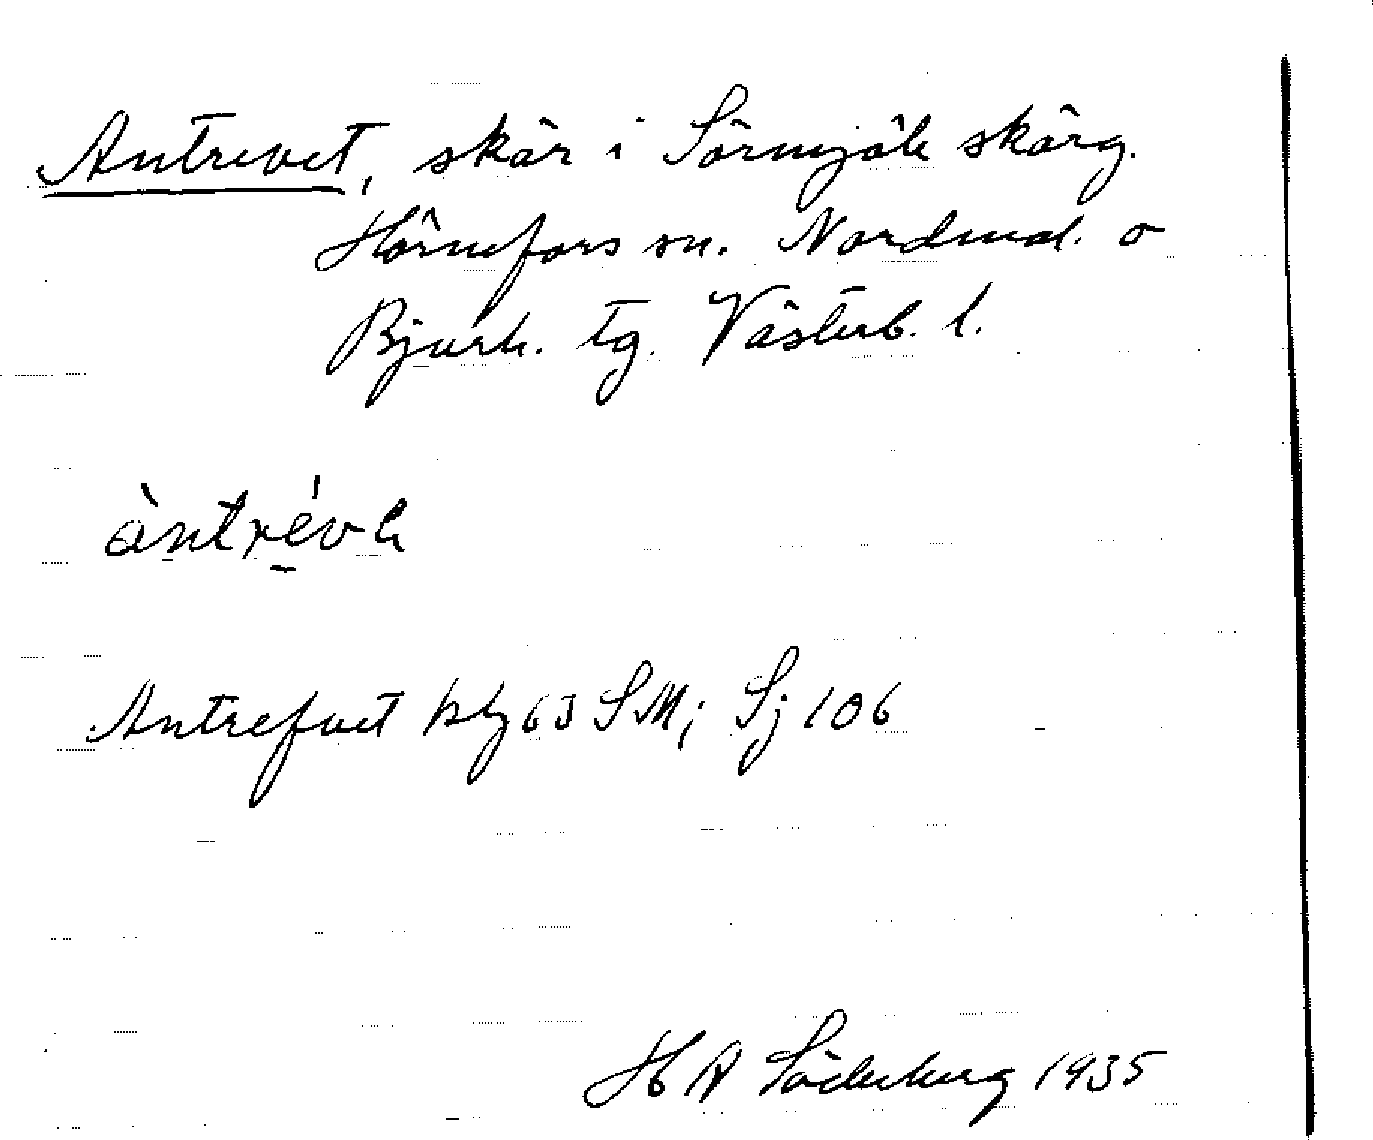 Antrevet, skär i Sörmjöle skärg.
Hörnefors sn. Nordmal. o
Bjurh. tg. Västerb. l.
àntrév
Antrefvet blz 63 SM; Sj 106
H A Söderberg 1935